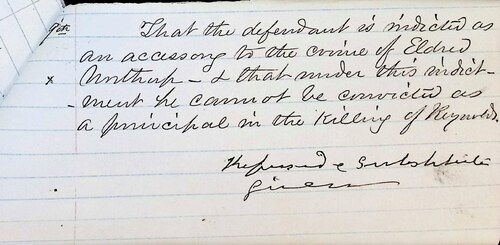 9th That the defendant is indicted as
an accessory to the crime of Eldred
x Northrup - & that under this indict-
-ment he cannot be convicted as
a principal in the killing of Reynolds.
Refused & Substitute
given